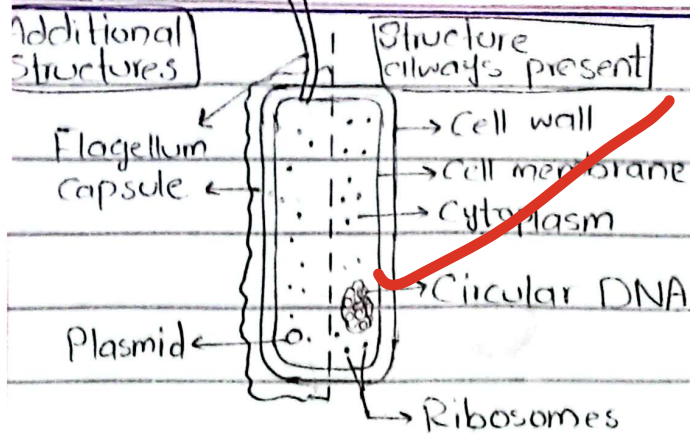 Additional
Structures
Structure
always present
Flagellum
Capsule
Plasmid
Cell wall
Cell membrane
Cytoplasm
Circular DNA
Ribosomes